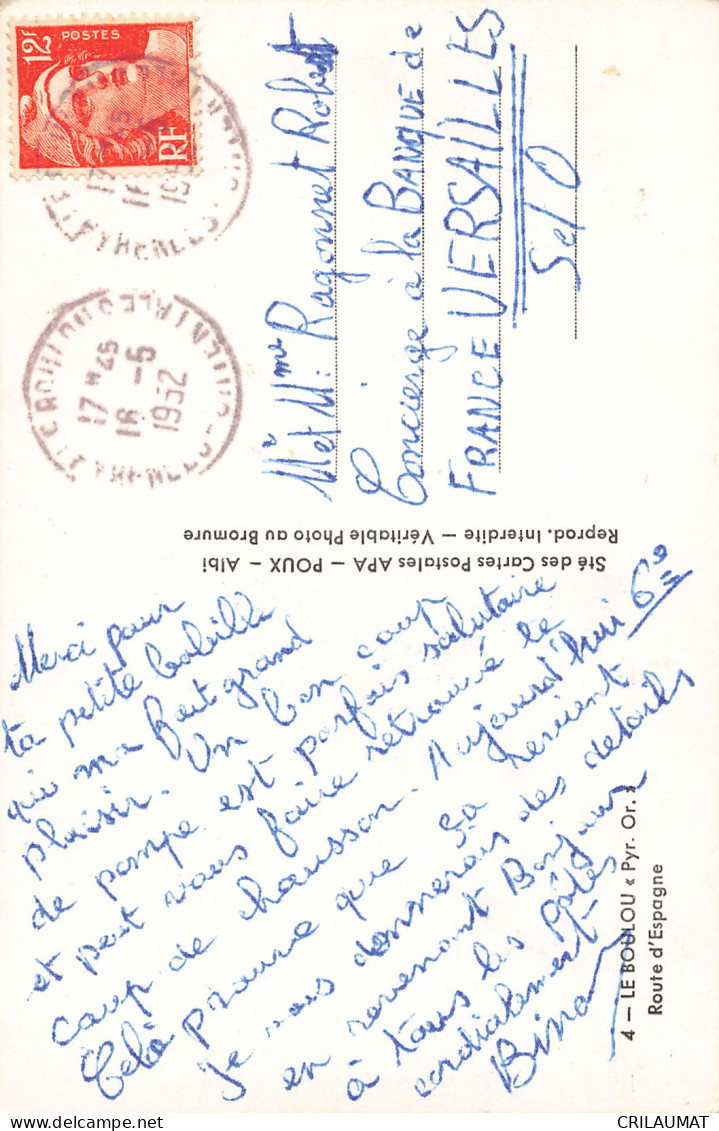 12F
POSTES
RF
17 H 45
16 -5
1952
LE BOULOU
PYRENEES-ORIENTALES
M et Mme Ragonnet Robert
Concierge à la BANQUE de
FRANCE VERSAILLES
S et O
Sté des Cartes Postales APA — POUX — Albi
Reprod. Interdite — Véritable Photo au Bromure
Merci pour
ta petite babille
qui ma fait grand
plaisir. Un bon coup
de pompe est parfois salutaire
et peut vous faire retrouvé le
coup de chausson. Aujourd'hui 6e
Celà prouve que sa revient
Je vous donnerais des details
en revenant Bonjour
à tous les
cordialement
Bino
4 — LE BOULOU « Pyr. Or. »
Route d'Espagne
CRILAUMAT